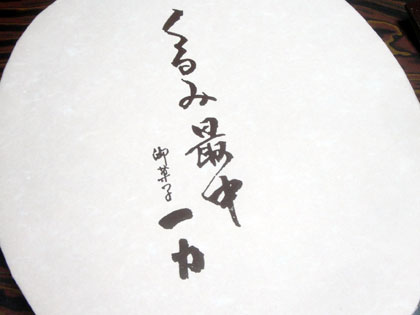 くるみ最中
御菓子
一力